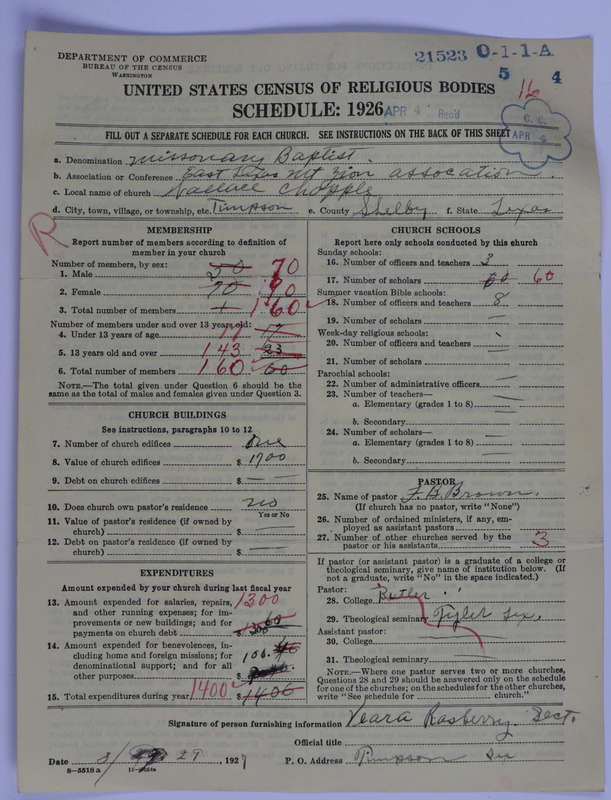 DEPARTMENT OF COMMERCE
BUREAU OF THE CENSUS
WASHINGTON
21523 0-1-1-A
5 4
16
UNITED STATES CENSUS OF RELIGIOUS BODIES
SCHEDULE: 1926
APR 4 Rec'd
C. C.
APR 4
FILL OUT A SEPARATE SCHEDULE FOR EACH CHURCH. SEE INSTRUCTIONS ON THE BACK OF THIS SHEET
a. Denomination Missonary Baptist.
b. Association or Conference East Texas Mt Zion assocation.
c. Local name of church Wallace Chopple
d. City, town, village, or township, etc. Timpson e. County Shelby f. State Texas
R
MEMBERSHIP
Report number of members according to definition of member in your church
Number of members, by sex:
1. Male 70
2. Female 70 90
3. Total number of members 160
Number of members under and over 13 years old:
4. Under 13 years of age 17
5. 13 years old and over 143 23
6. Total number of members 160 60
NOTE.—The total given under Question 6 should be the same as the total of males and females given under Question 3.
CHURCH BUILDINGS
See instructions, paragraphs 10 to 12
7. Number of church edifices one
8. Value of church edifices $ 1700
9. Debt on church edifices $ —
10. Does church own pastor's residence? no
Yes or No
11. Value of pastor's residence (if owned by church) $
12. Debt on pastor's residence (if owned by church) $ —
EXPENDITURES
Amount expended by your church during last fiscal year
13. Amount expended for salaries, repairs, and other running expenses; for improvements or new buildings; and for payments on church debt $ 1300
14. Amount expended for benevolences, including home and foreign missions; for denominational support; and for all other purposes $ 100.
15. Total expenditures during year 1400 $ 1400
CHURCH SCHOOLS
Report here only schools conducted by this church
Sunday schools:
16. Number of officers and teachers 3
17. Number of scholars 60 60
Summer vacation Bible schools:
18. Number of officers and teachers 8
19. Number of scholars —
Week-day religious schools:
20. Number of officers and teachers
21. Number of scholars —
Parochial schools:
22. Number of administrative officers —
23. Number of teachers—
a. Elementary (grades 1 to 8) —
b. Secondary
24. Number of scholars—
a. Elementary (grades 1 to 8) —
b. Secondary —
PASTOR
25. Name of pastor F. B. Brown.
(If church has no pastor, write "None")
26. Number of ordained ministers, if any, employed as assistant pastors
27. Number of other churches served by the pastor or his assistants 3
If pastor (or assistant pastor) is a graduate of a college or theological seminary, give name of institution below. (If not a graduate, write "No" in the space indicated.)
Pastor:
28. College Butler
29. Theological seminary Tyler Tex.
Assistant pastor:
30. College
31. Theological seminary
NOTE.—Where one pastor serves two or more churches, Questions 28 and 29 should be answered only on the schedule for one of the churches; on the schedules for the other churches, write "See schedule for church."
Signature of person furnishing information Veara Rasberry. Sect.
Official title
Date 3/ 29, 1927 P. O. Address Timpson
8—5518 a